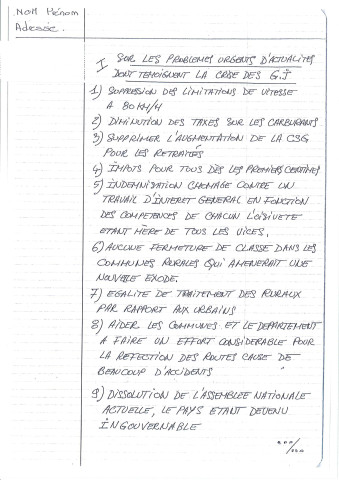 NOM Prénom
Adresse.
I SUR LES PROBLEMES URGENTS D'ACTUALITES
DONT TEMOIGNENT LA CRISE DES G.J
1) SUPPRESSION DES LIMITATIONS DE VITESSE
A 80 KM/H
2) DIMINUTION DES TAXES SUR LES CARBURANTS
3) SUPPRIMER L'AUGMENTATION DE LA CSG
POUR LES RETRAITÉS
4) IMPOTS POUR TOUS DÈS LES PREMIERS CENTIMES
5) INDEMNISATION CHOMAGE CONTRE UN
TRAVAIL D'INTERET GENERAL EN FONCTION
DES COMPETENCES DE CHACUN L'OISIVETE
ETANT MÈRE DE TOUS LES VICES.
6) AUCUNE FERMETURE DE CLASSE DANS LES
COMMUNES RURALES QUI AMENERAIT UNE
NOUVELLE EXODE.
7) EGALITE DE TRAITEMENT DES RURAUX
PAR RAPPORT AUX URBAINS
8) AIDER LES COMMUNES ET LE DEPARTEMENT
A FAIRE UN EFFORT CONSIDERABLE POUR
LA REFECTION DES ROUTES CAUSE DE
BEAUCOUP D'ACCIDENTS
9) DISSOLUTION DE L'ASSEMBLEE NATIONALE
ACTUELLE, LE PAYS ETANT DEVENU
INGOUVERNABLE
.../...